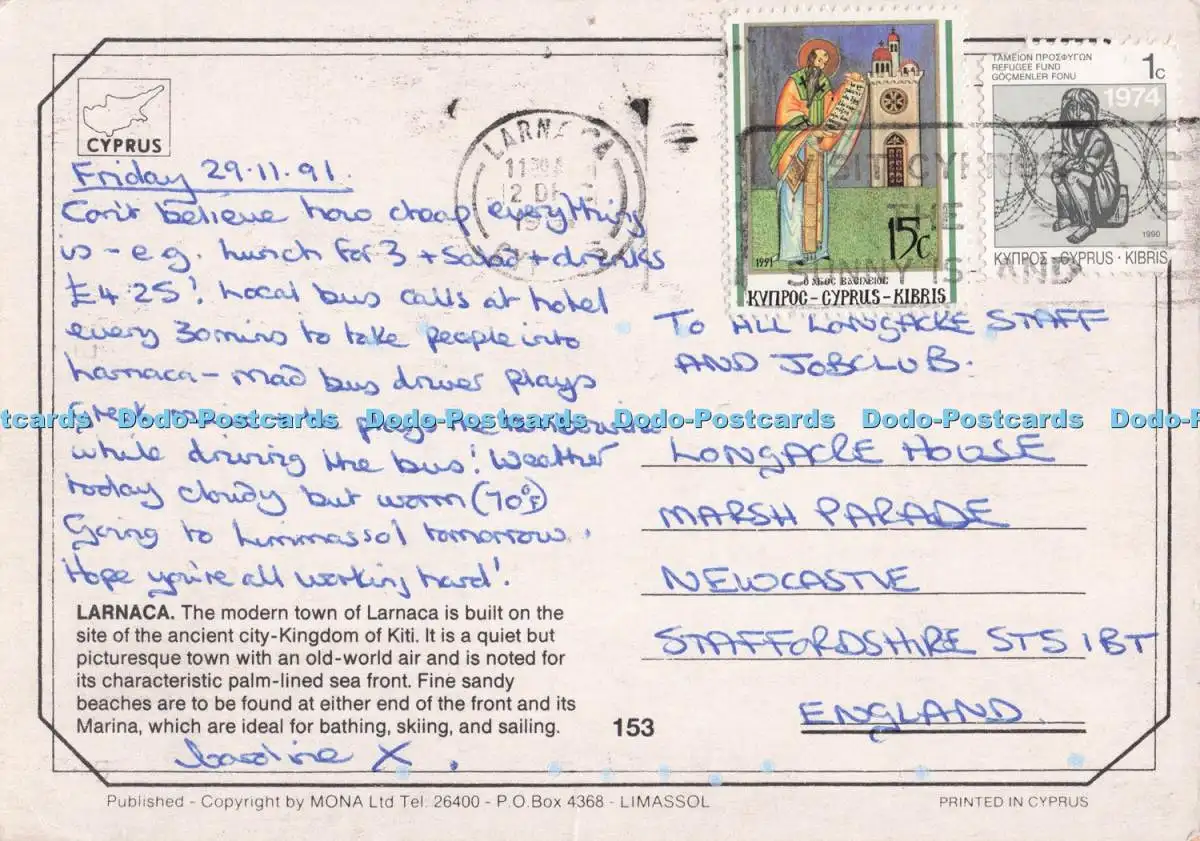 CYPRUS
Friday 29.11.91.
Can't believe how cheap everything
is - e.g. lunch for 3 + Salad + drinks
£4.25! Local bus calls at hotel
every 30 mins to take people into
Larnaca - mad bus driver plays
Greek plays the
while driving the bus! Weather
today cloudy but warm (70°F)
Going to Limmassol tomorrow.
Hope you're all working hard!
LARNACA. The modern town of Larnaca is built on the
site of the ancient city-Kingdom of Kiti. It is a quiet but
picturesque town with an old-world air and is noted for
its characteristic palm-lined sea front. Fine sandy
beaches are to be found at either end of the front and its
Marina, which are ideal for bathing, skiing, and sailing.
X.
153
LARNACA
12 DE
15c
1991
ΚΥΠΡΟΣ - CYPRUS - KIBRIS
ΤΑΜΕΙΟΝ ΠΡΟΣΦΥΓΩΝ
REFUGEE FUND
GÖÇMENLER FONU
1c
1974
1990
ΚΥΠΡΟΣ · CYPRUS · KIBRIS
VISIT CYPRUS
THE
SUNNY ISLAND
TO ALL LONGACRE STAFF
AND JOBCLUB.
LONGACRE HOUSE
MARSH PARADE
NEWCASTLE
STAFFORDSHIRE ST5 1BT
ENGLAND
Postcards Dodo-Postcards Dodo-Postcards Dodo-Postcards Dodo-Postcards Dodo-P
Published - Copyright by MONA Ltd Tel: 26400 - P.O.Box 4368 - LIMASSOL
PRINTED IN CYPRUS